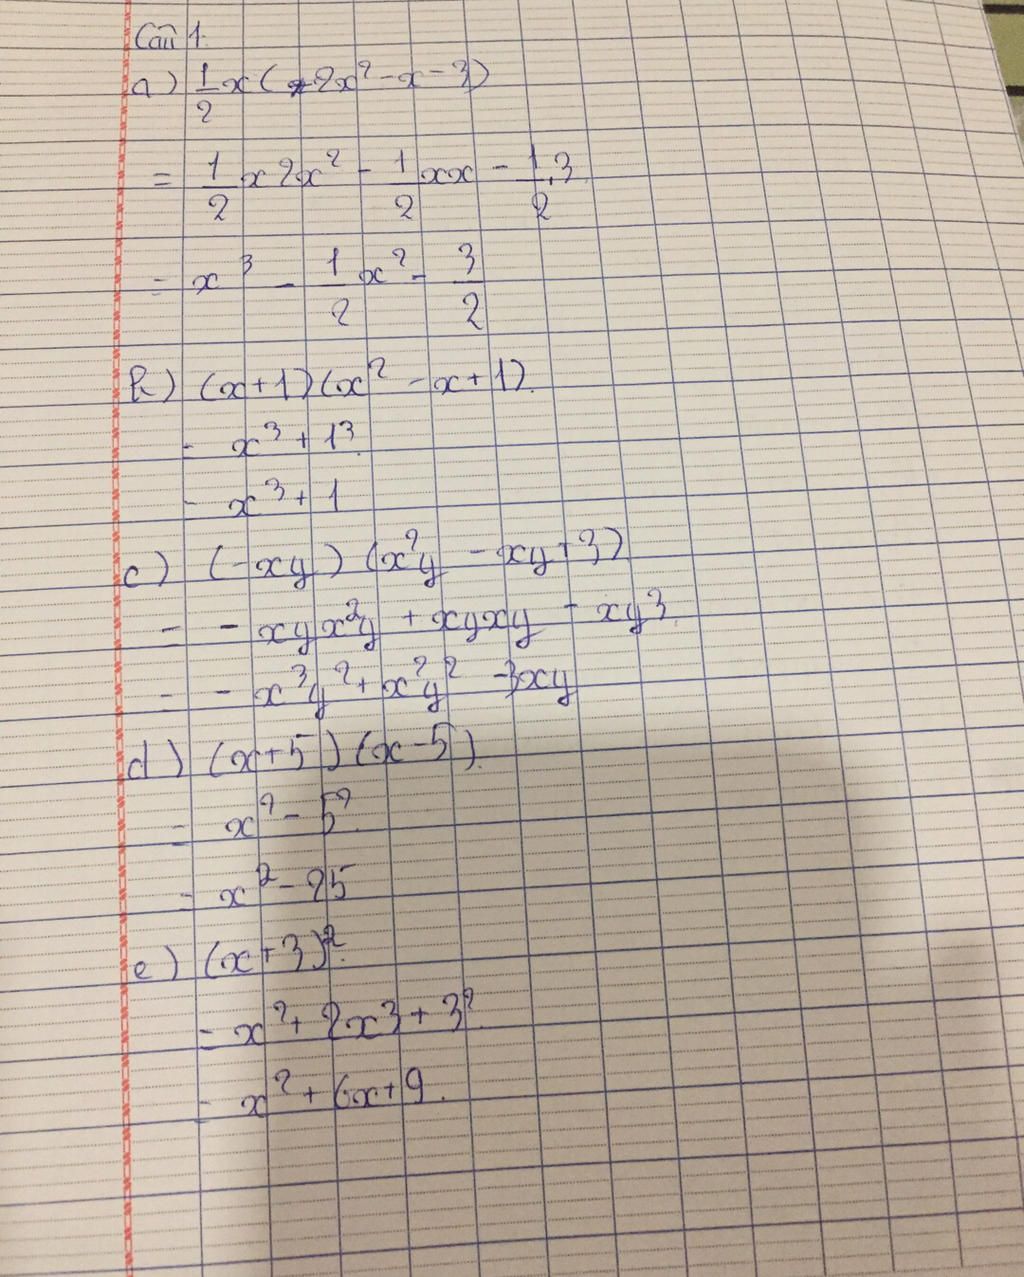 Câu 1.
a) 1/2 x ( 2x² - x - 3)
= 1/2 x 2x² - 1/2 xx - 1/2 .3
= x³ - 1/2 x² - 3/2
b) (x+1)(x² - x+1).
= x³ + 1³
= x³ + 1
c) (-xy) (x²y - xy+3)
= - xyx²y + xyxy - xy3
= - x³y² + x²y² -3xy
d) (x+5) (x-5).
= x² - 5²
= x² - 25
e) (x+3)².
= x² + 2x3 + 3²
= x² + 6x+9.